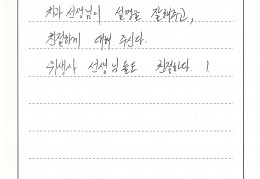 치과 선생님이 설명을 잘해주고,
친절하게 대해 주신다.
위생사 선생님들도 친절하다. !